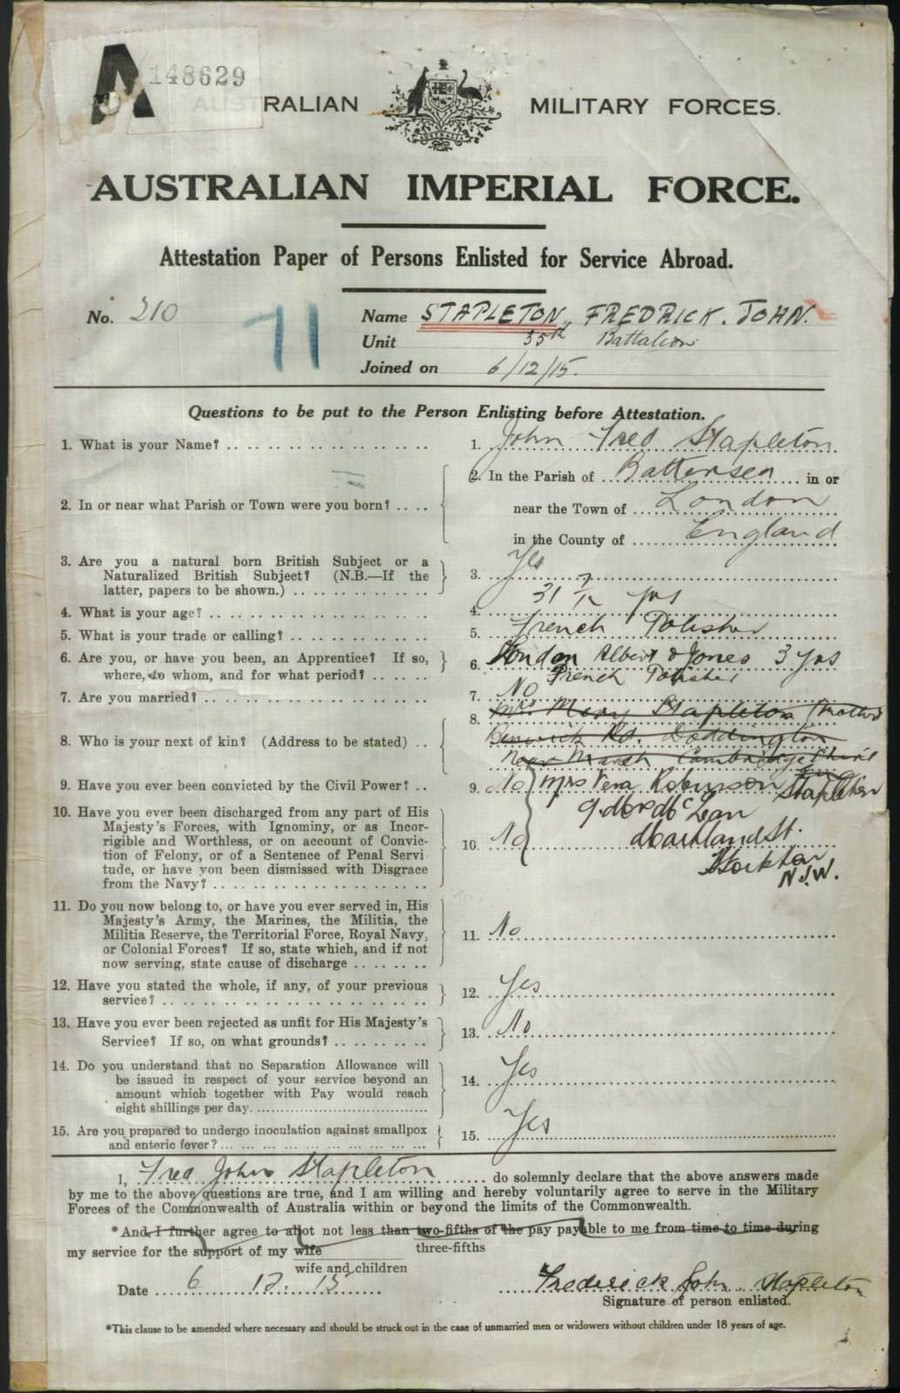 A 148629
AUSTRALIAN MILITARY FORCES.
AUSTRALIA
AUSTRALIAN IMPERIAL FORCE.
Attestation Paper of Persons Enlisted for Service Abroad.
No. 210
71
Name STAPLETON, FREDRICK. JOHN.
Unit 35th Battalion
Joined on 6/12/15.
Questions to be put to the Person Enlisting before Attestation.
1. What is your Name? 1. John Fred Stapleton
2. In or near what Parish or Town were you born? 2. In the Parish of Battersea in or
near the Town of London
in the County of England
3. Are you a natural born British Subject or a
Naturalized British Subject? (N.B.—If the
latter, papers to be shown.) 3. Yes
4. What is your age? 4. 31 7/12 yrs
5. What is your trade or calling? 5. French Polisher
6. Are you, or have you been, an Apprentice? If so,
where, to whom, and for what period? 6. London Albert & Jones 3 yrs
French Polisher
7. Are you married? 7. No
8. Who is your next of kin? (Address to be stated) 8. Mrs Mary Stapleton (Mother)
Benwick Rd. Doddington
Near March Cambridgeshire
9. Have you ever been convicted by the Civil Power? 9. No
Mrs Vera Robinson Stapleton
Mitchell St.
Stockton
N.S.W.
10. Have you ever been discharged from any part of His
Majesty's Forces, with Ignominy, or as Incor-
rigible and Worthless, or on account of Convic-
tion of Felony, or of a Sentence of Penal Servi
tude, or have you been dismissed with Disgrace
from the Navy? 10. No
11. Do you now belong to, or have you ever served in, His
Majesty's Army, the Marines, the Militia, the
Militia Reserve, the Territorial Force, Royal Navy,
or Colonial Forces? If so, state which, and if not
now serving, state cause of discharge 11. No
12. Have you stated the whole, if any, of your previous
service? 12. Yes
13. Have you ever been rejected as unfit for His Majesty's
Service? If so, on what grounds? 13. No
14. Do you understand that no Separation Allowance will
be issued in respect of your service beyond an
amount which together with Pay would reach
eight shillings per day. 14. Yes
15. Are you prepared to undergo inoculation against smallpox
and enteric fever? 15. Yes
I, Fred John Stapleton do solemnly declare that the above answers made
by me to the above questions are true, and I am willing and hereby voluntarily agree to serve in the Military
Forces of the Commonwealth of Australia within or beyond the limits of the Commonwealth.
*And I further agree to allot not less than two-fifths of the pay payable to me from time to time during
three-fifths
my service for the support of my wife
wife and children
Date 6 12. 15
Frederick John Stapleton
Signature of person enlisted.
*This clause to be amended where necessary and should be struck out in the case of unmarried men or widowers without children under 18 years of age.